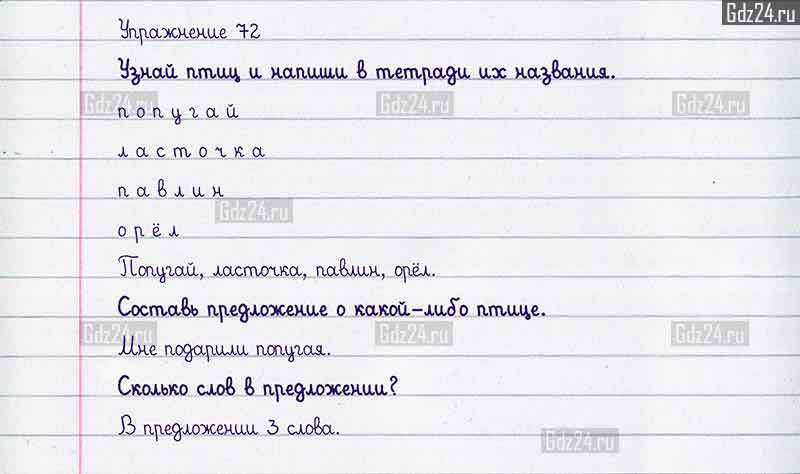 Gdz24.ru
Упражнение 72
Узнай птиц и напиши в тетради их названия.
Gdz24.ru Gdz24.ru Gdz24.ru
п о п у г а й
л а с т о ч к а
п а в л и н
Gdz24.ru
о р ё л
Попугай, ласточка, павлин, орёл.
Составь предложение о какой-либо птице.
Gdz24.ru Gdz24.ru Gdz24.ru
Мне подарили попугая.
Сколько слов в предложении?
В предложении 3 слова.
Gdz24.ru